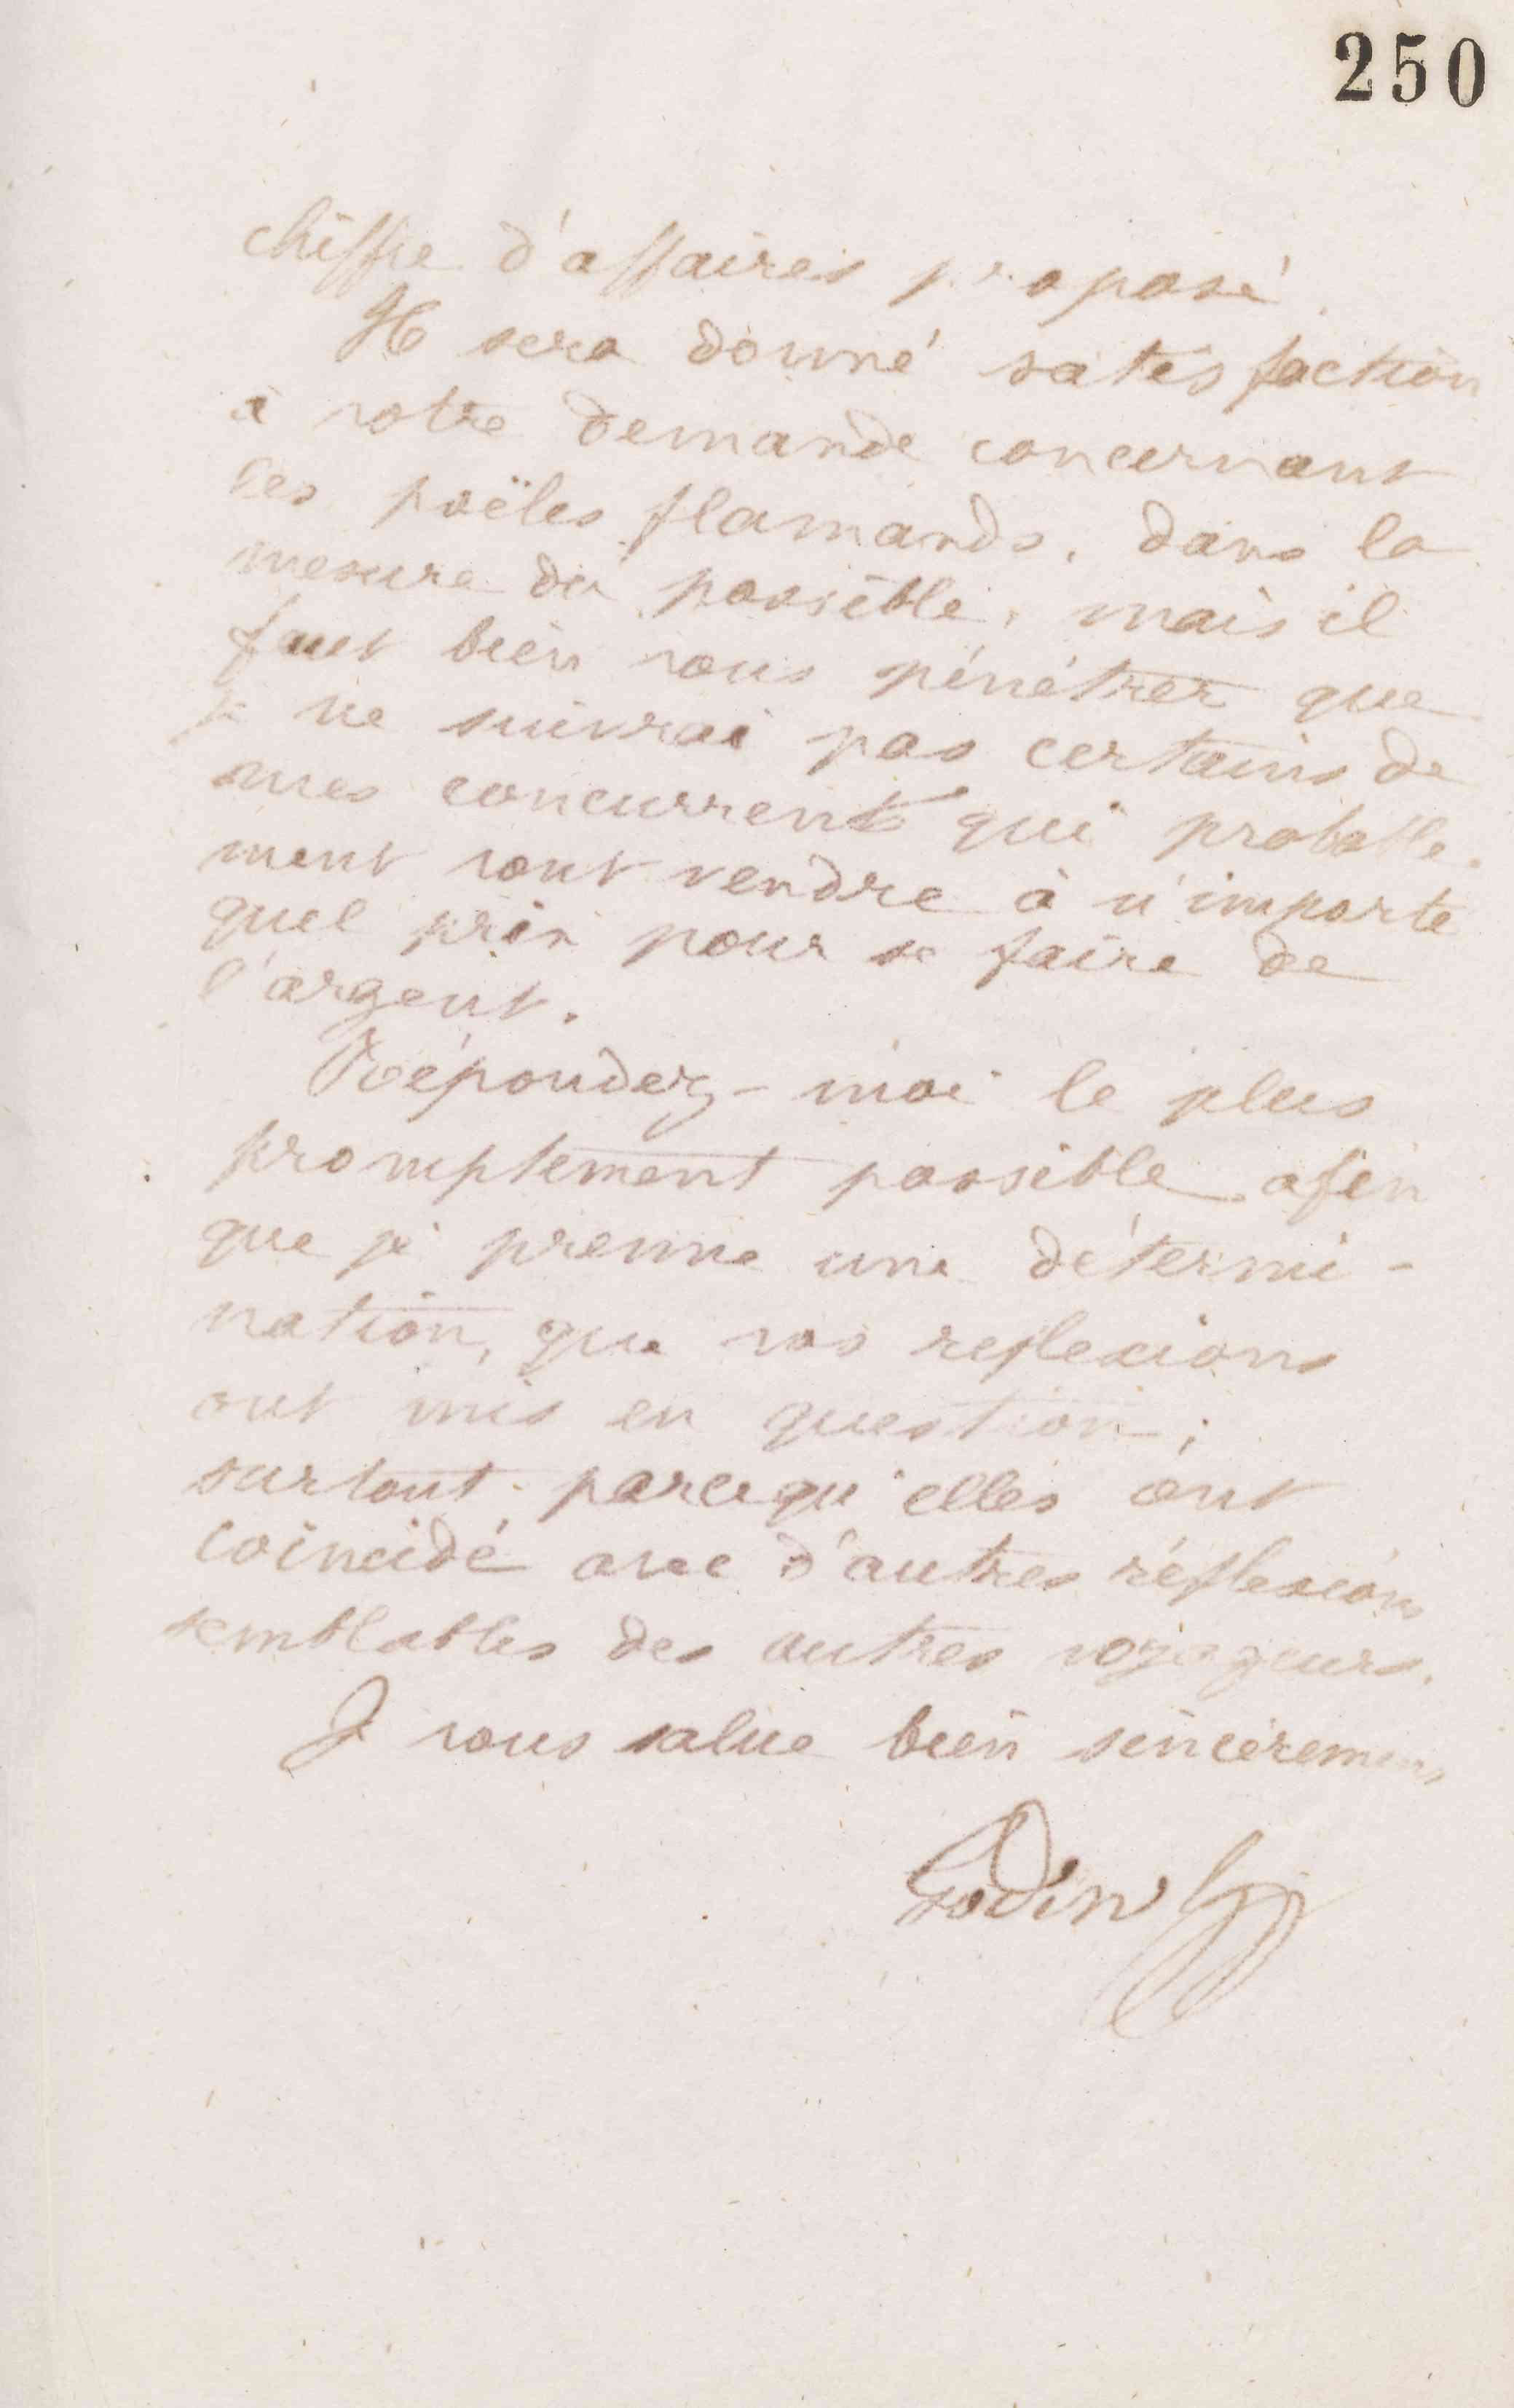 250
chiffre d'affaires proposé.
Il sera donné satisfaction
à votre demande concernant
les poëles flamands, dans la
mesure du possible, mais il
faut bien vous pénétrer que
je ne suivrai pas certains de
mes concurrents qui probable-
ment vont vendre à n'importe
quel prix pour se faire de
l'argent.
Répondez-moi le plus
promptement possible afin
que je prenne une détermi-
nation, que vos reflexions
ont mis en question ;
surtout parcequ'elles ont
coincidé avec d'autres réflexions
semblables des autres voyageurs.
Je vous salue bien sincèrement
Godin